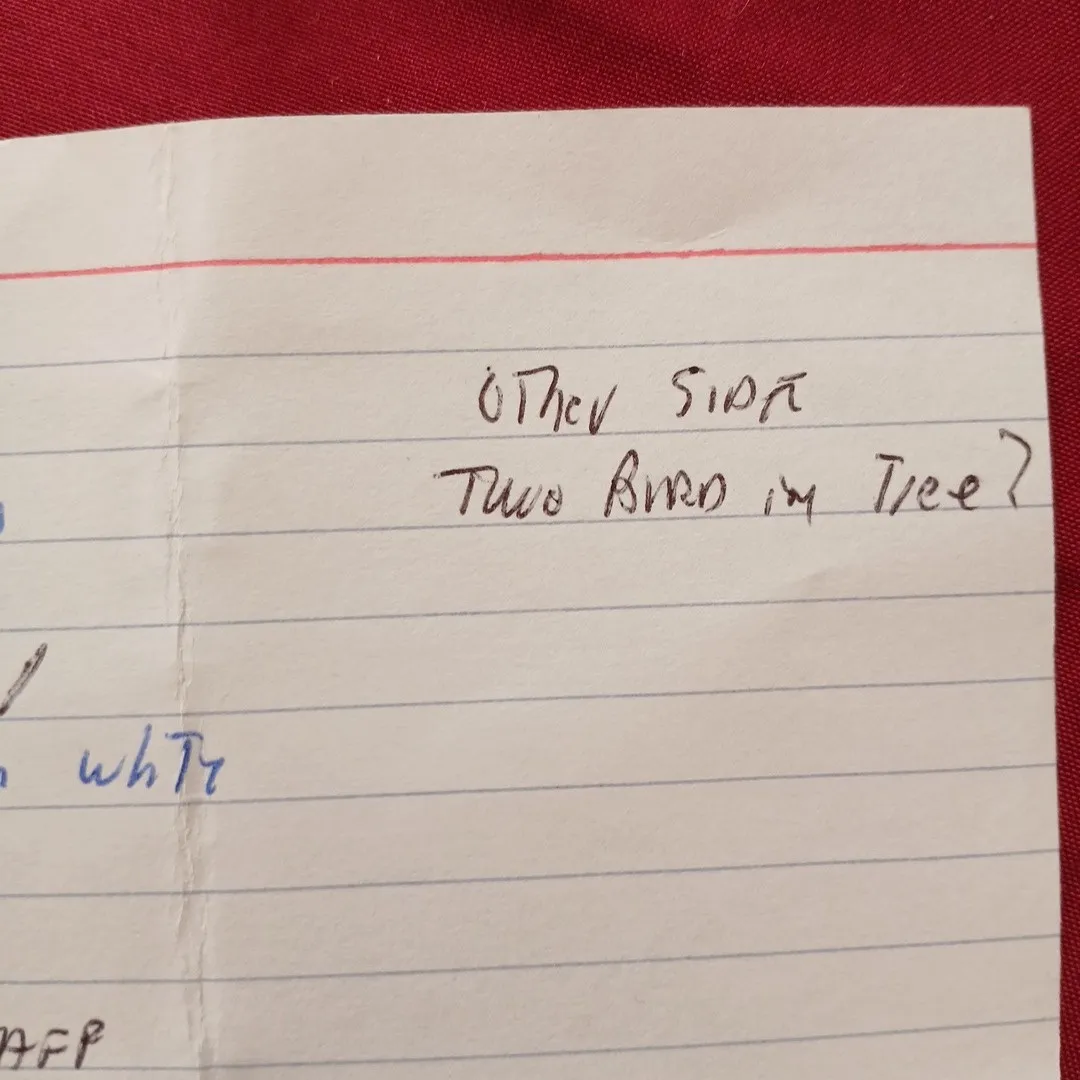 OTher SIDE
Two BIRD in Tree?
whTe
AFP